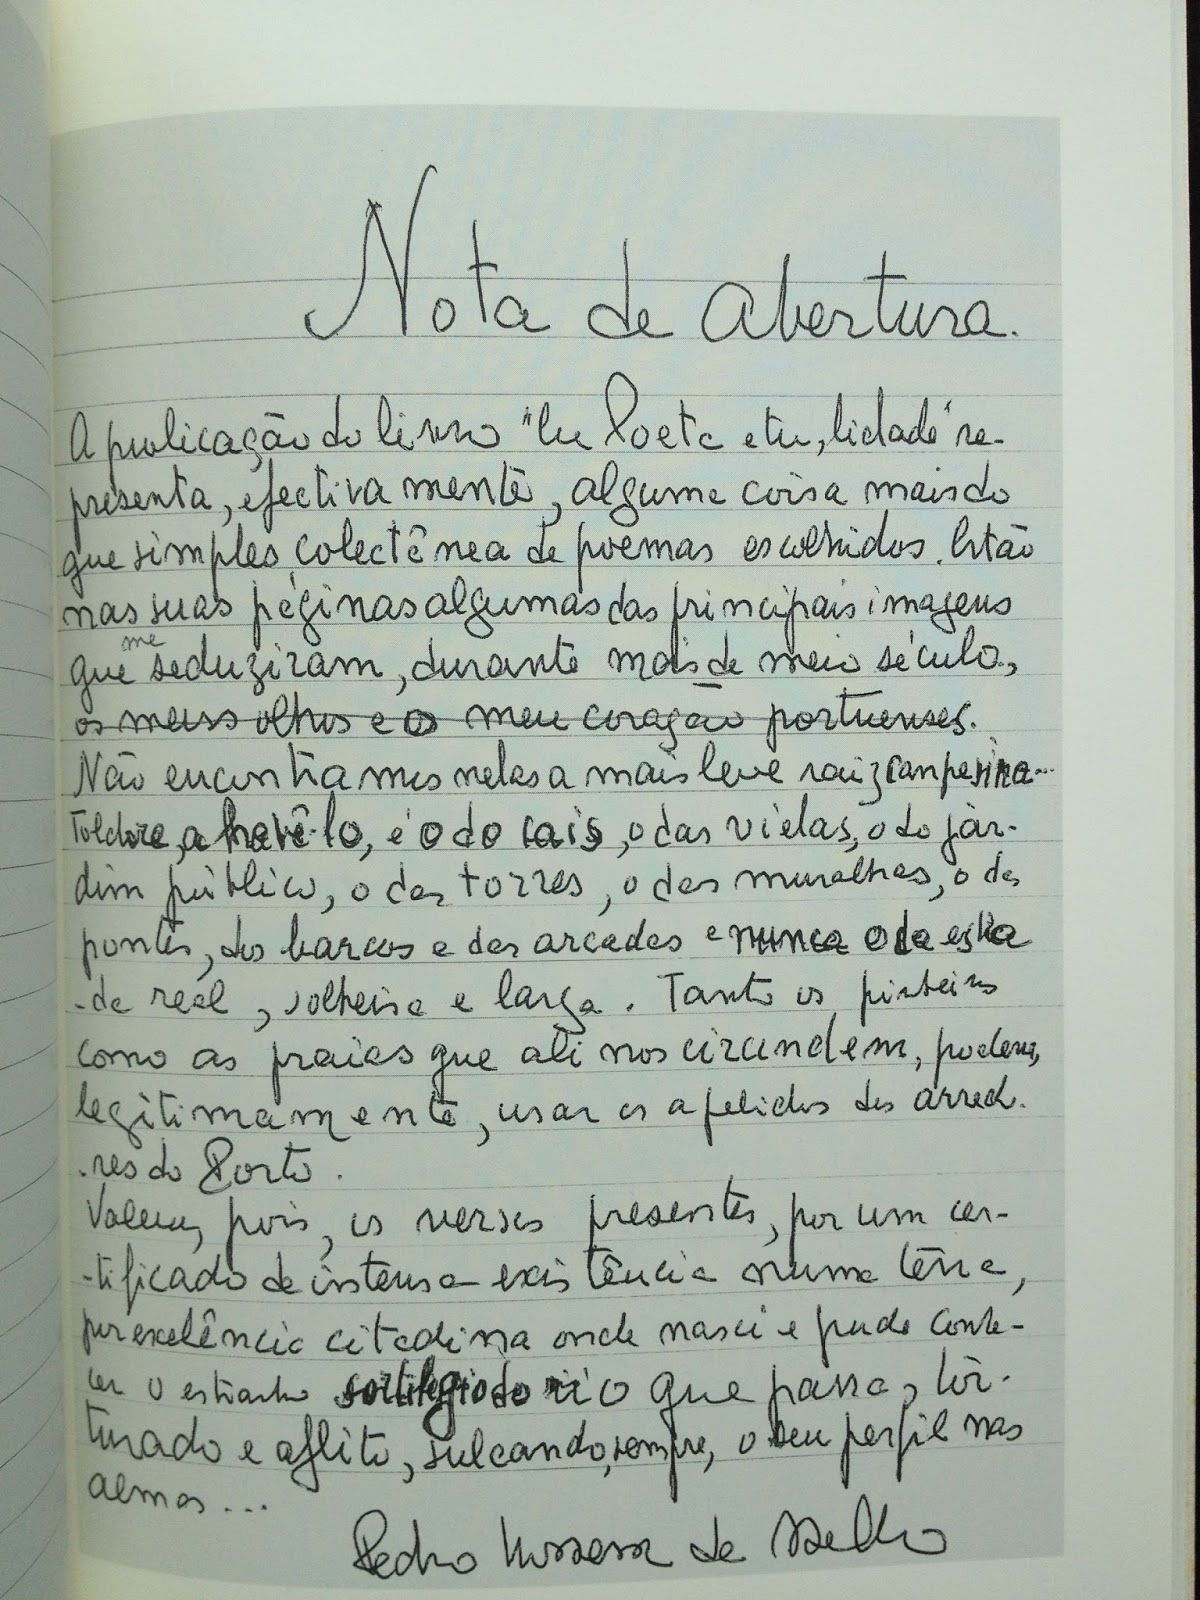 Nota de abertura.
A publicação do livro "Eu Poeta e tu, Cidade" re-
presenta, efectivamente, alguma coisa mais do
que simples colectânea de poemas escolhidos. Estão
nas suas páginas algumas das principais imagens
que me seduziram, durante mais de meio século,
os meus olhos e o meu coração portuenses.
Não encontramos nelas a mais leve raiz campesina...
Folclore, a havê-lo, é o do cais, o das vielas, o do jar-
dim público, o das torres, o das muralhas, o das
pontes, dos barcos e das arcadas e nunca o da estra
-da real, solheira e larga. Tanto os pinheiros
como as praias que ali nos circundem, podem,
legitimamente, usar os apelidos dos arredo-
-res do Porto.
Valem, pois, os versos presentes, por um cer-
-tificado de intensa existência numa terra,
por excelência citadina onde nasci e pude conhe-
cer o estranho sortilégio do rio que passa, tor-
turado e aflito, sulcando, sempre, o seu perfil nas
almas...
Pedro Homem de Mello